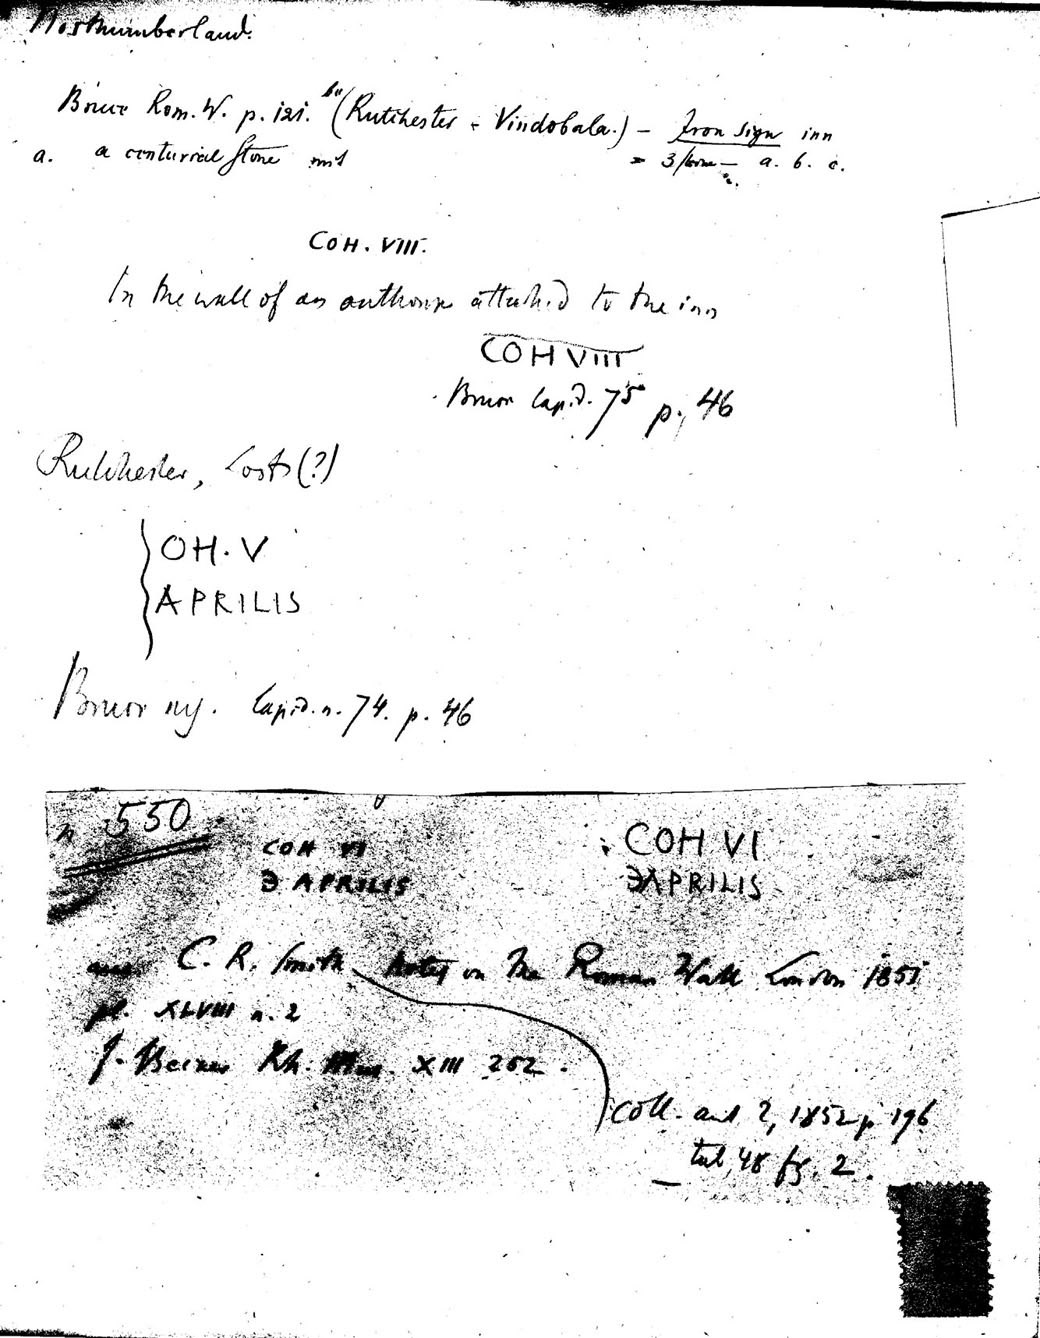 Northumberland.
Bruce Rom. W. p. 121. (Rutchester - Vindobala.) - Iron sign inn
a. a centurial stone
= 3 a. b. c.
COH. VIII.
In the wall of an outhouse attached to the inn
COH VIII
Bruce Lapid. 75 p. 46
Rutchester, Lost (?)
OH. V
APRILIS
Bruce Lapid. n. 74. p. 46
n 550
COH VI
Ɔ APRILIS
COH VI
ƆAPRILIS
C. R. Smith notes on the Roman Wall London 1851
pl. XLVIII n. 2
J. Becker Rh. Mus. XIII 262.
Coll. ant 2, 1852 p 196
tab. 48 fg. 2.